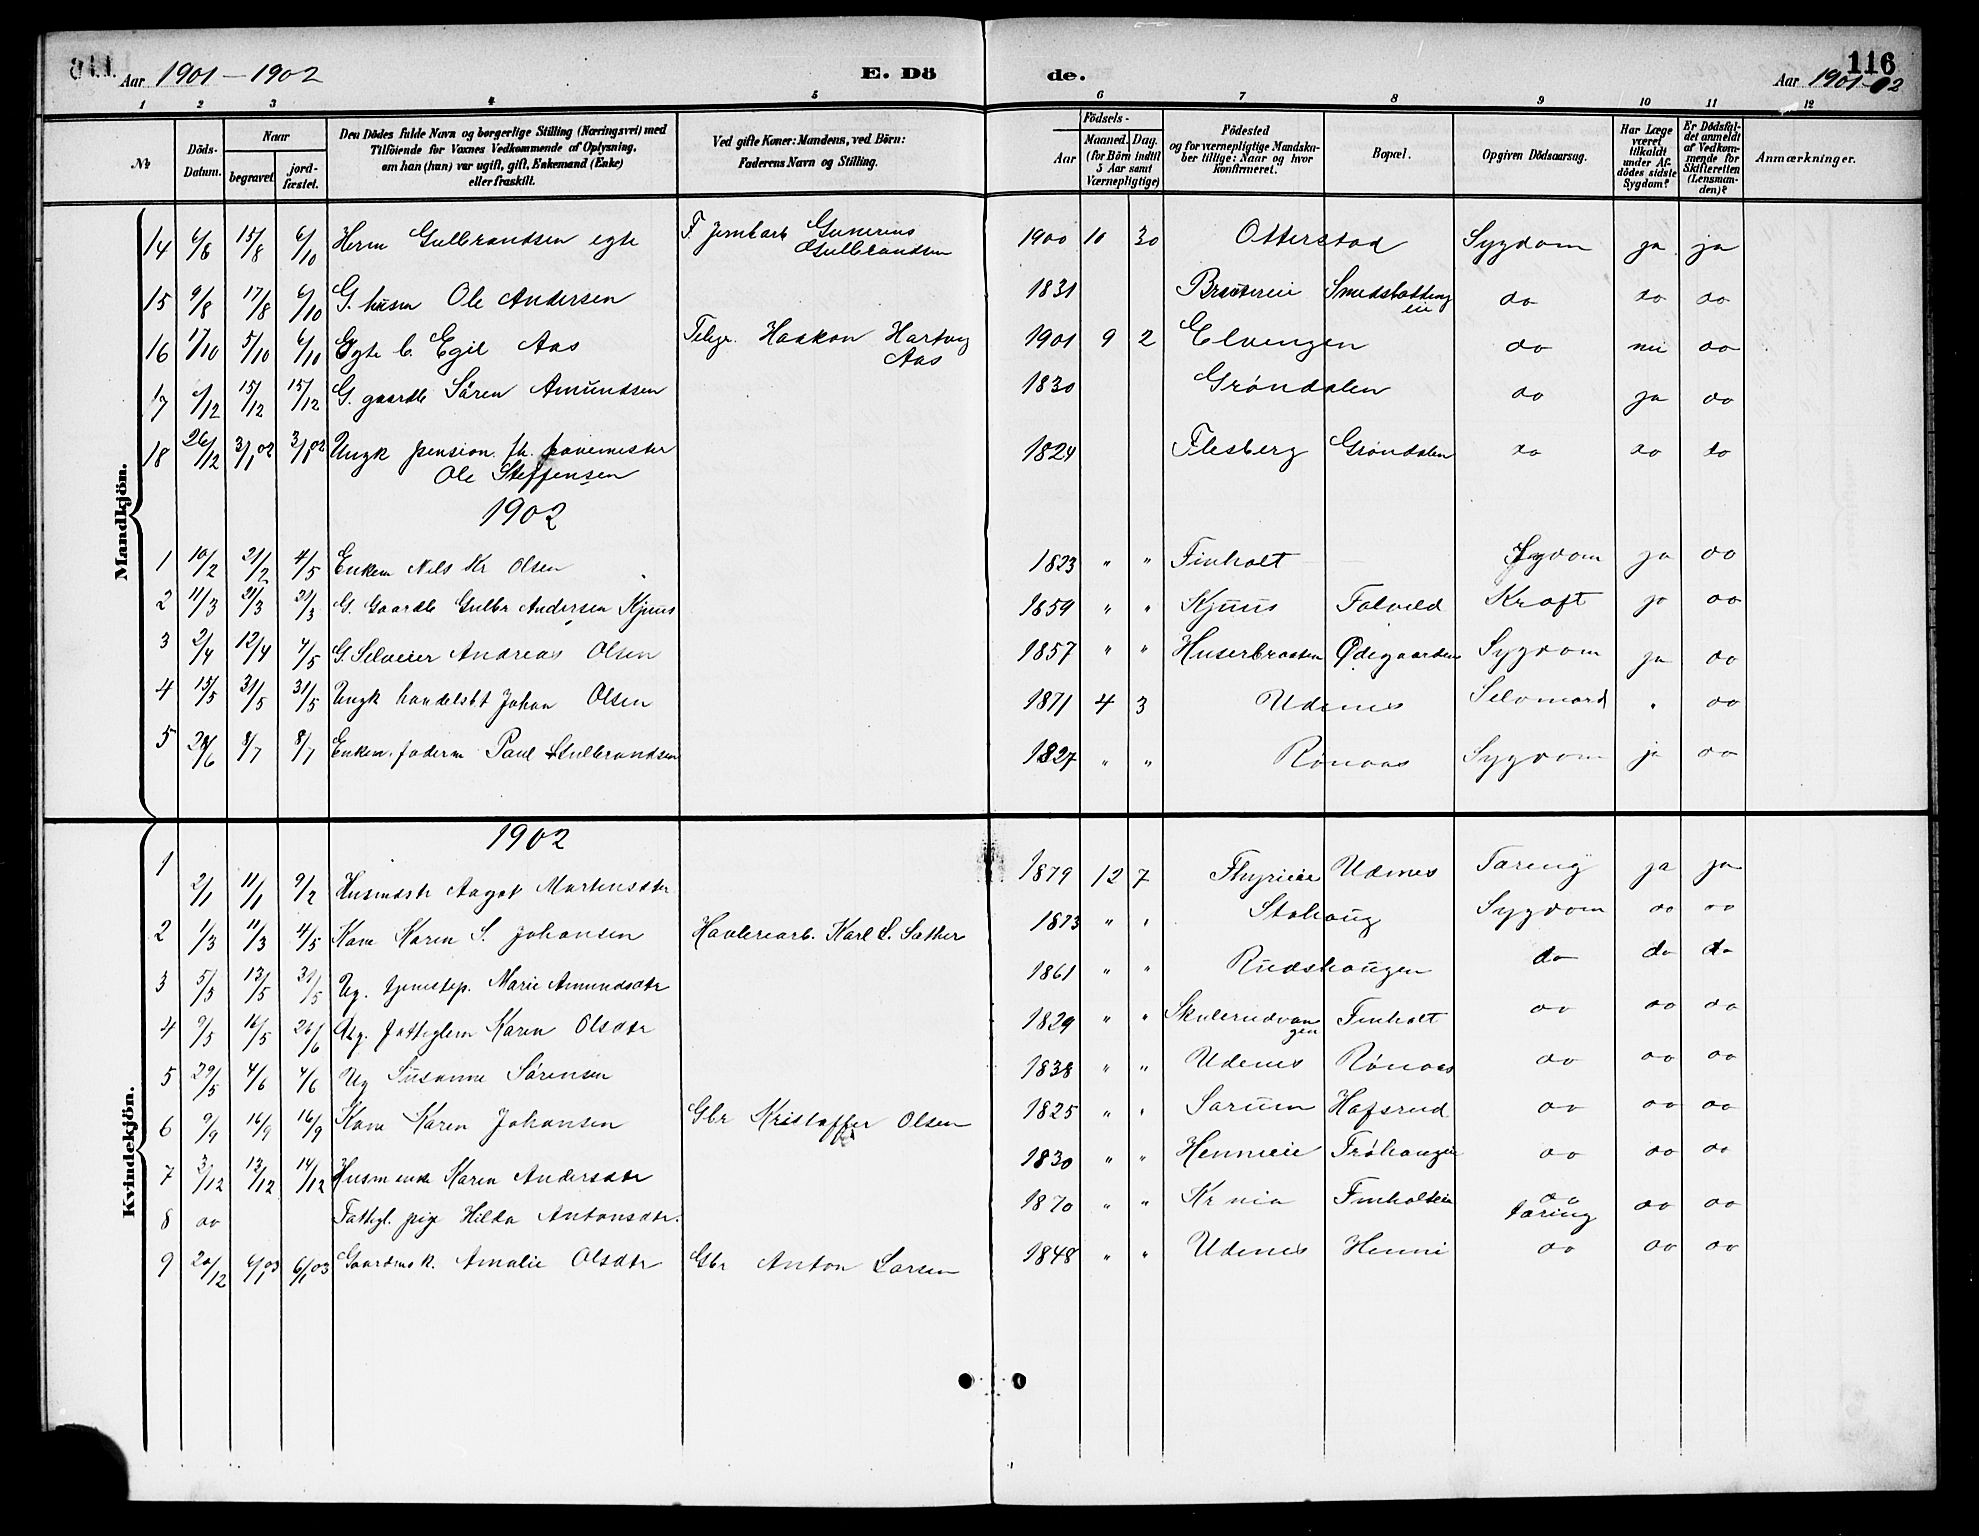 Aar 1901-1902 E. Dö de. 116
Aar 1901-02
1 2 3 4 5 6 7 8 9 10 11 12
№ Döds-Datum. Naar begravet. jord-fæstet. Den Dödes fulde Navn og borgerlige Stilling (Næringsvei) med Tilföiende for Voxnes Vedkommende af Oplysning, om han (hun) var ugift, gift, Enkemand (Enke) eller fraskilt. Ved gifte Koner: Mandens, ved Börn: Faderens Navn og Stilling. Födsels- Aar Maaned. Dag. (for Börn indtil 5 Aar samt Værnepligtige) Födested og for værnepligtige Mandskaber tillige: Naar og hvor konfirmeret. Bopæl. Opgiven Dödsaarsag. Har Læge været tilkaldt under Afdödes sidste Sygdom? Er Dödsfaldet anmeldt af Vedkommende for Skifteretten (Lensmanden)? Anmærkninger.
Mandkjön.
14 6/8 15/8 6/10 Herm Gulbrandsen egte F. Jernbarb Gunerius Gulbrandsen 1900 10 30 Otterstad Sygdom ja ja
15 9/8 17/8 6/10 G. husm Ole Andersen 1831 Braatereie do do do
16 1/10 5/10 6/10 Egte b. Egil Aas Telegr. Haakon Hartvig Aas 1901 9 2 Elvengen do nei do
17 6/12 15/12 15/12 G. gaardb Sören Amundsen 1830 Grøndalen do ja do
18 26/12 3/1 02 3/1 02 Ungk pension. fh. banemester Ole Steffensen 1824 Flesberg Grøndalen do do do
1902
1 10/2 21/2 4/5 Enkem Nils Kr Olsen 1823 " " Finholt Sygdom ja do
2 11/3 21/3 21/3 G. Gaardb Gulbr Andersen Kjuus 1859 " " Kjuus Kraft ja do
3 2/4 12/4 4/5 G. Selveier Andreas Olsen 1857 " " Huserbraaten Ødegaarden Sygdom ja do
4 15/5 31/5 31/5 Ungk handelsbt Johan Olsen 1871 4 3 Udenes Selvmord " do
5 28/6 8/7 8/7 Enkem. foderm Paul Gulbrandsen 1827 " " Rønaas Sygdom ja do
Kvindekjön.
1902
1 2/1 11/1 9/2 Husmdtr Aagot Martinsdtr 1879 12 7 Udnes Tæring ja ja
2 1/3 11/3 4/5 Kone Karen S. Johansen Høvleriarb. Karl L. Sæther 1873 " " Stohaug Sygdom do do
3 5/5 13/5 31/5 Ug. tjenestep. Marie Amundsdtr 1861 " " Rudshaugen do do do
4 9/5 16/5 26/6 Ug. fattiglem Karen Olsdtr 1829 " " Skulerudvangen Finholt do do do
5 29/5 4/6 4/6 Ug Susanne Sörensen 1838 " " Udenes Rønaas do do do
6 9/9 16/9 16/9 Kone Karen Johansen Gbr Kristoffer Olsen 1825 " " Sarum Hafsrud do do do
7 3/12 13/12 14/12 Husm enke Karen Andersdtr 1830 " " Hennieie Frøhaugeie do do do
8 do Fattigl. pige Hilda Antonsdtr. 1870 " " Kr nia Finholteie do tæring do do
9 20/12 6/1 03 6/1 03 Gaardmsk. Amalie Olsdtr Gbr Anton Larsen 1848 " " Udenes Henni do do do